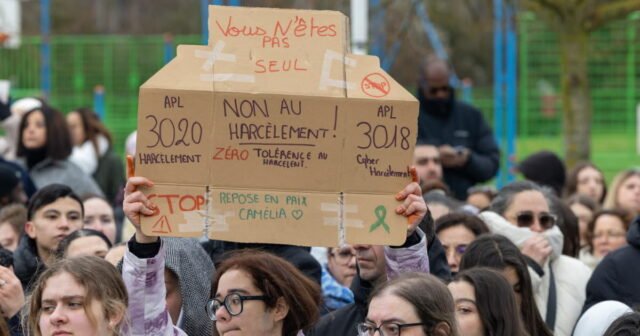 Vous N'êtes
PAS
SEUL
STOP
APL
3020
HARCÈLEMENT
NON AU
HARCÈLEMENT !
ZÉRO TOLÉRENCE AU
HARCELENT.
APL
3018
Cyber
Harcèlement
STOP
REPOSE EN PAIX
CAMÉLIA